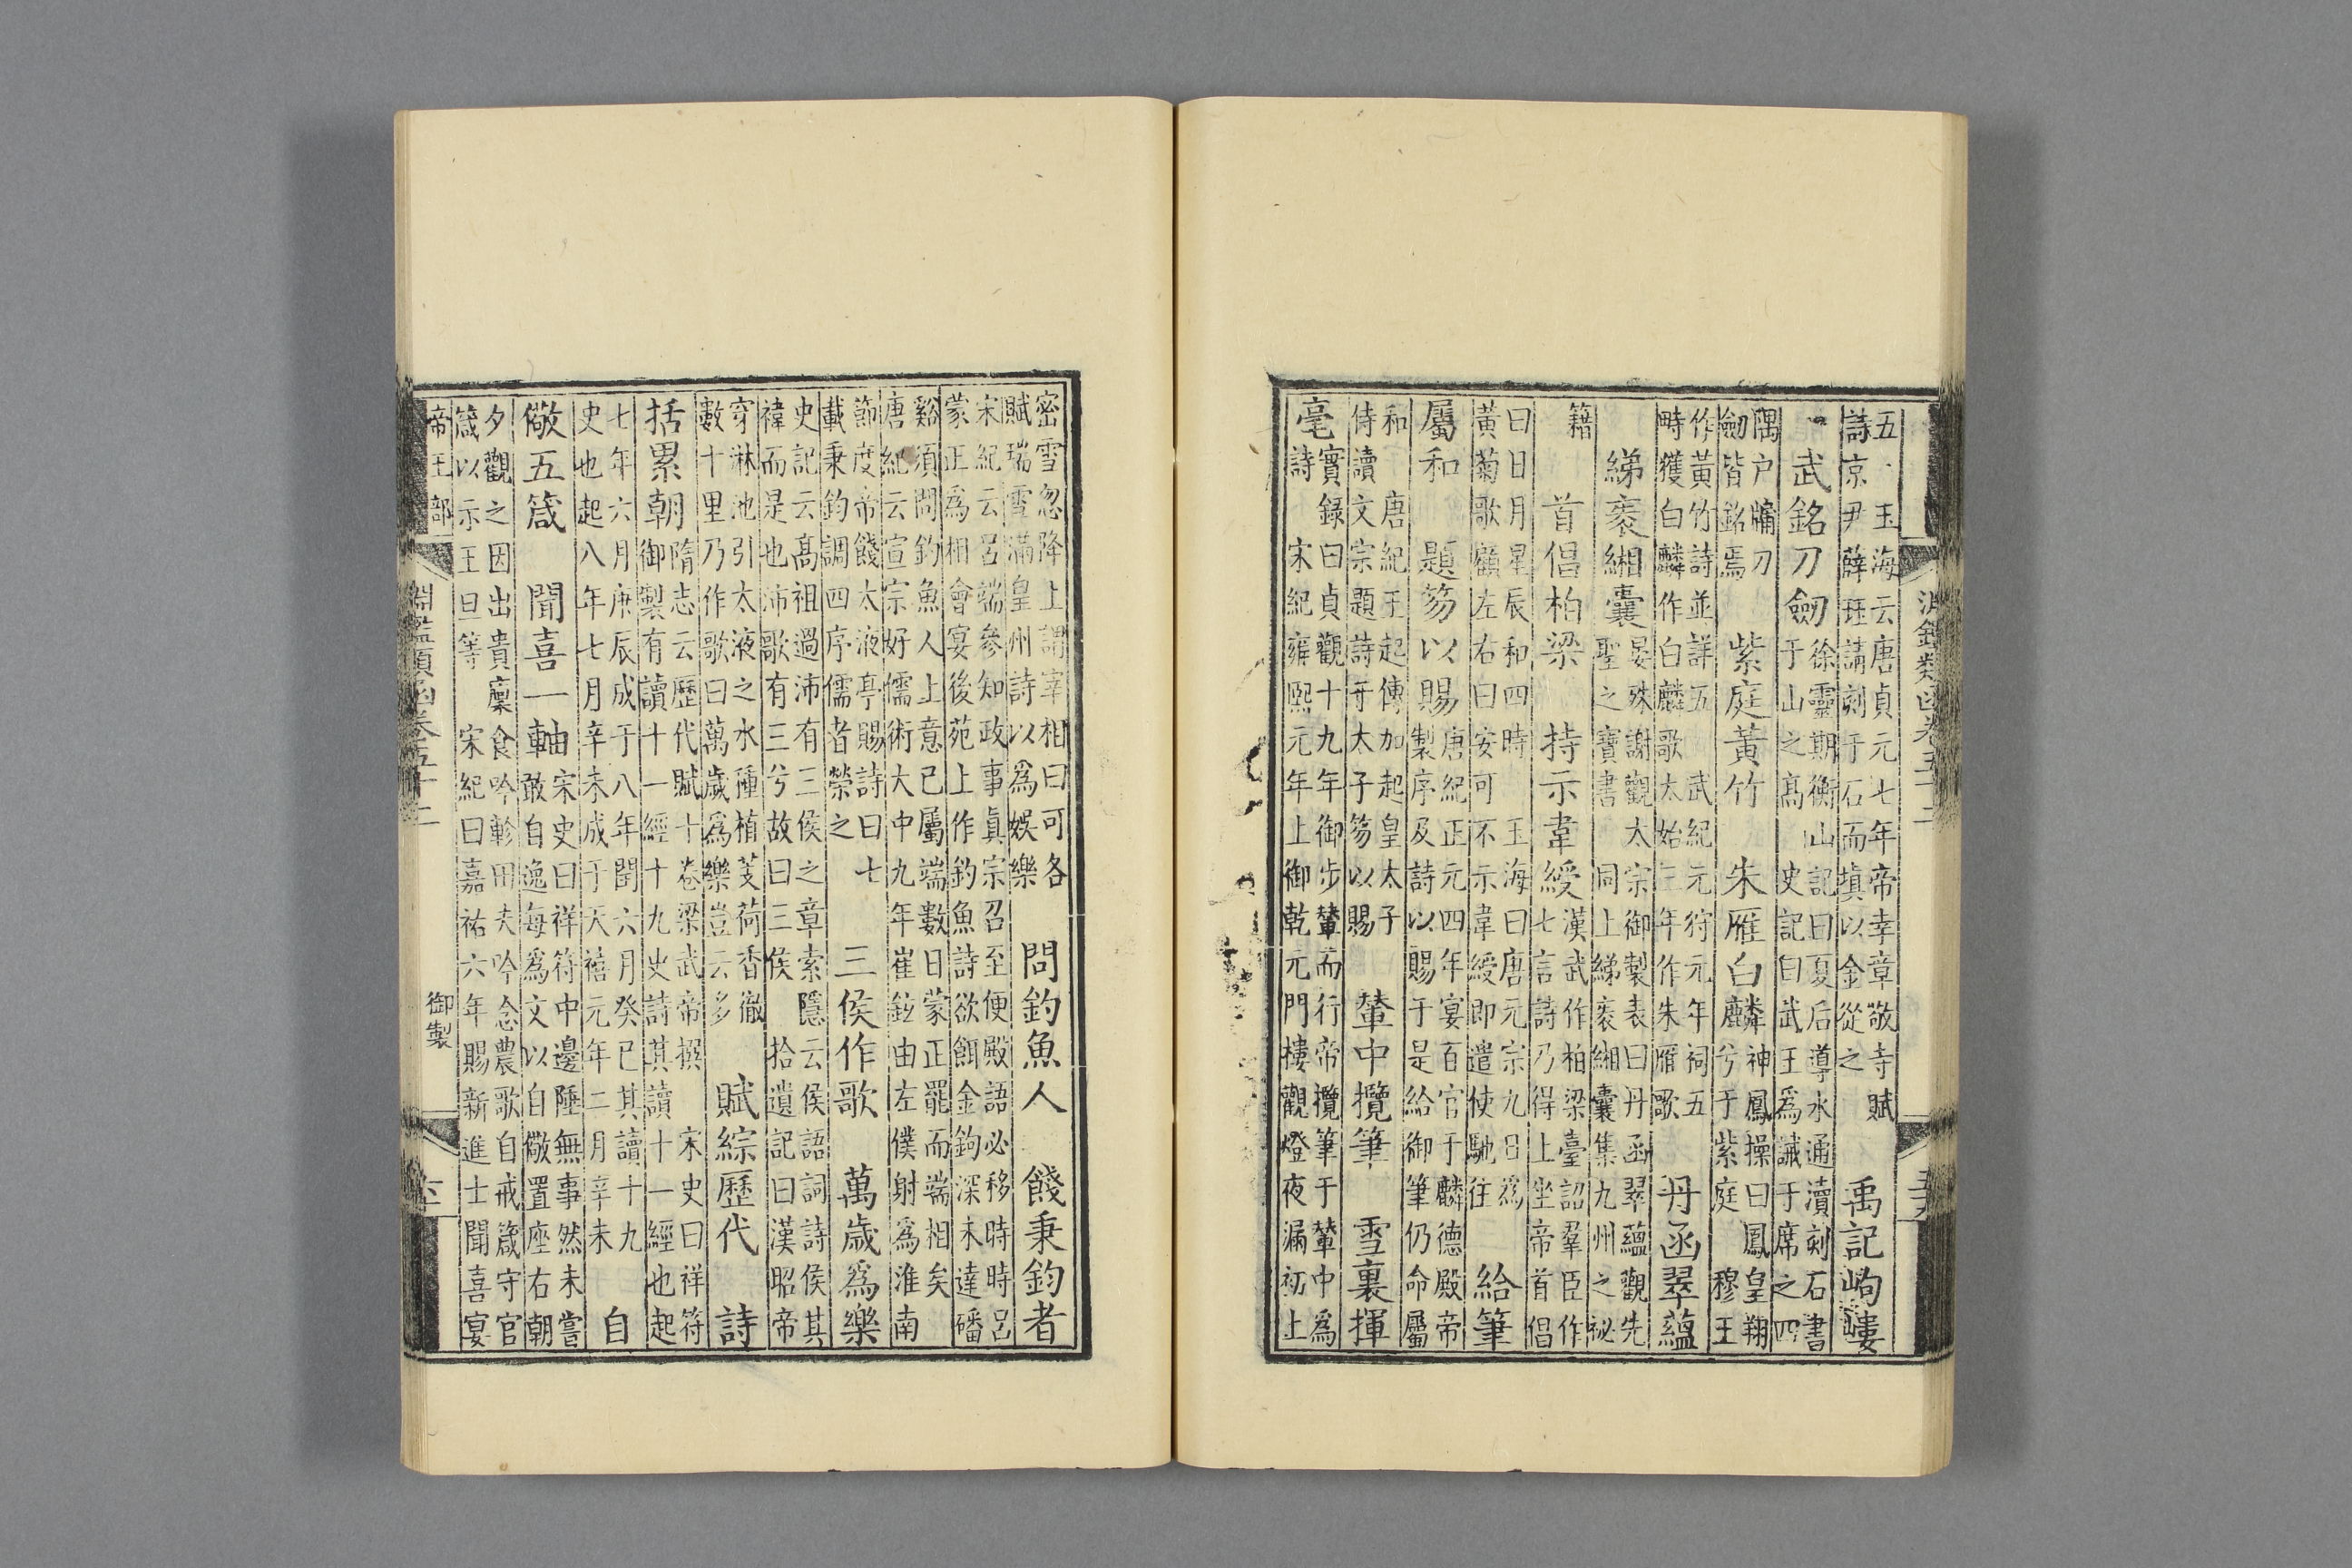 淵鑑類函卷五十二
五　玉海云唐貞元七年帝幸章敬寺賦
詩京尹薛珏請刻于石而填以金從之
禹記岣嶁
武銘刀劒
徐靈期衡山記曰夏后導水通瀆刻石書
于山之高　史記曰武王爲誡于席之四
隅户牖刀
劒皆銘焉
紫庭黃竹　朱雁白麟
神鳳操曰鳳皇翔
兮于紫庭　穆王
作黃竹詩並詳五　武紀元狩元年祠五
畤獲白麟作白麟歌太始三年作朱雁歌
丹函翠蘊
綈袠緗囊
晏殊謝觀太宗御製表曰丹函翠蘊觀先
聖之寶書　同上綈袠緗囊集九州之祕
籍
首倡柏梁　持示韋綬
漢武作柏梁臺詔羣臣作
七言詩乃得上坐帝首倡
曰日月星辰和四時　玉海曰唐元宗九日爲
黃菊歌顧左右曰安可不示韋綬即遣使馳往
給筆
屬和　題笏以賜
唐紀正元四年宴百官于麟德殿帝
製序及詩以賜于是給御筆仍命屬
和　唐紀王起傳加起皇太子
侍讀文宗題詩于太子笏以賜
輦中攬筆　雪裏揮
毫
實錄曰貞觀十九年御步輦而行帝攬筆于輦中爲
詩　宋紀雍熙元年上御乾元門樓觀燈夜漏初上
密雪忽降上謂宰相曰可各
賦瑞雪滿皇州詩以爲娛樂
問釣魚人　餞秉鈞者
宋紀云呂端參知政事眞宗召至便殿語必移時時呂
蒙正爲相會宴後苑上作釣魚詩欲餌金鉤深未達磻
谿須問釣魚人上意已屬端數日蒙正罷而端相矣
唐紀云宣宗好儒術大中九年崔鉉由左僕射爲淮南
節度帝餞太液亭賜詩曰七
載秉鈞調四序儒者榮之
三侯作歌　萬歲爲樂
史記云高祖過沛有三侯之章索隱云侯語詞詩侯其
禕而是也沛歌有三兮故曰三侯　拾遺記曰漢昭帝
穿淋池引太液之水種植芰荷香徹
數十里乃作歌曰萬歲爲樂豈云多
賦綜歷代　詩
括累朝
隋志云歷代賦十卷梁武帝撰　宋史曰祥符
御製有讀十一經十九史詩其讀十一經也起
七年六月庚辰成于八年閏六月癸巳其讀十九
史也起八年七月辛未成于天禧元年二月辛未
自
儆五箴　聞喜一軸
宋史曰祥符中邊陲無事然未嘗
敢自逸每爲文以自儆置座右朝
夕觀之因出貴廩食吟軫田夫吟念農歌自戒箴守官
箴以示王旦等　宋紀曰嘉祐六年賜新進士聞喜宴
帝王部　御製
淵鑑類函卷五十二